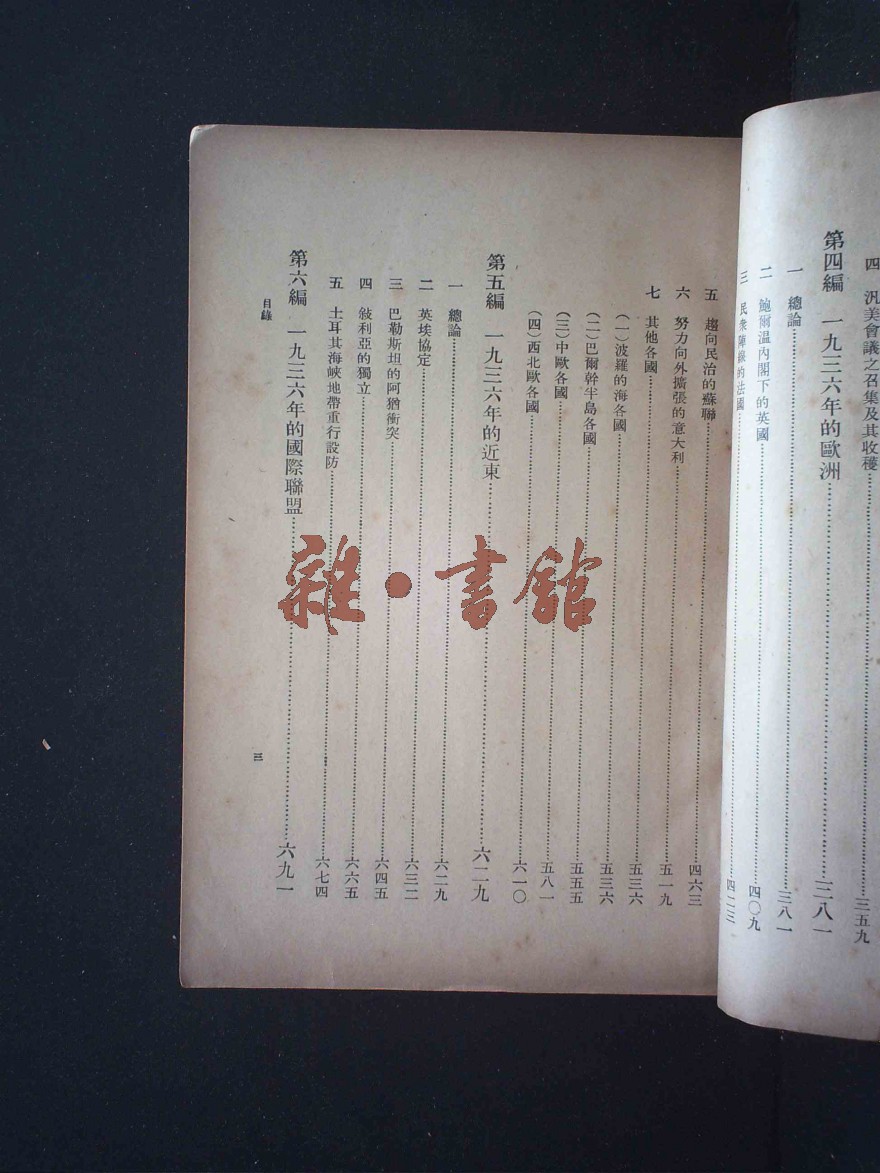 四　汎美會議之召集及其收穫……三五九
第四編　一九三六年的歐洲……三八一
一　總論……三八一
二　鮑爾温內閣下的英國……四〇九
三　民衆陣線的法國……四二三
五　趨向民治的蘇聯……四六三
六　努力向外擴張的意大利……五一九
七　其他各國……五三六
（一）波羅的海各國……五三六
（二）巴爾幹半島各國……五五五
（三）中歐各國……五八一
（四）西北歐各國……六一〇
第五編　一九三六年的近東……六二九
一　總論……六二九
二　英埃協定……六三二
三　巴勒斯坦的阿猶衝突……六四五
四　敍利亞的獨立……六六五
五　土耳其海峽地帶重行設防……六七四
第六編　一九三六年的國際聯盟……六九一
目錄
三
雜·書館